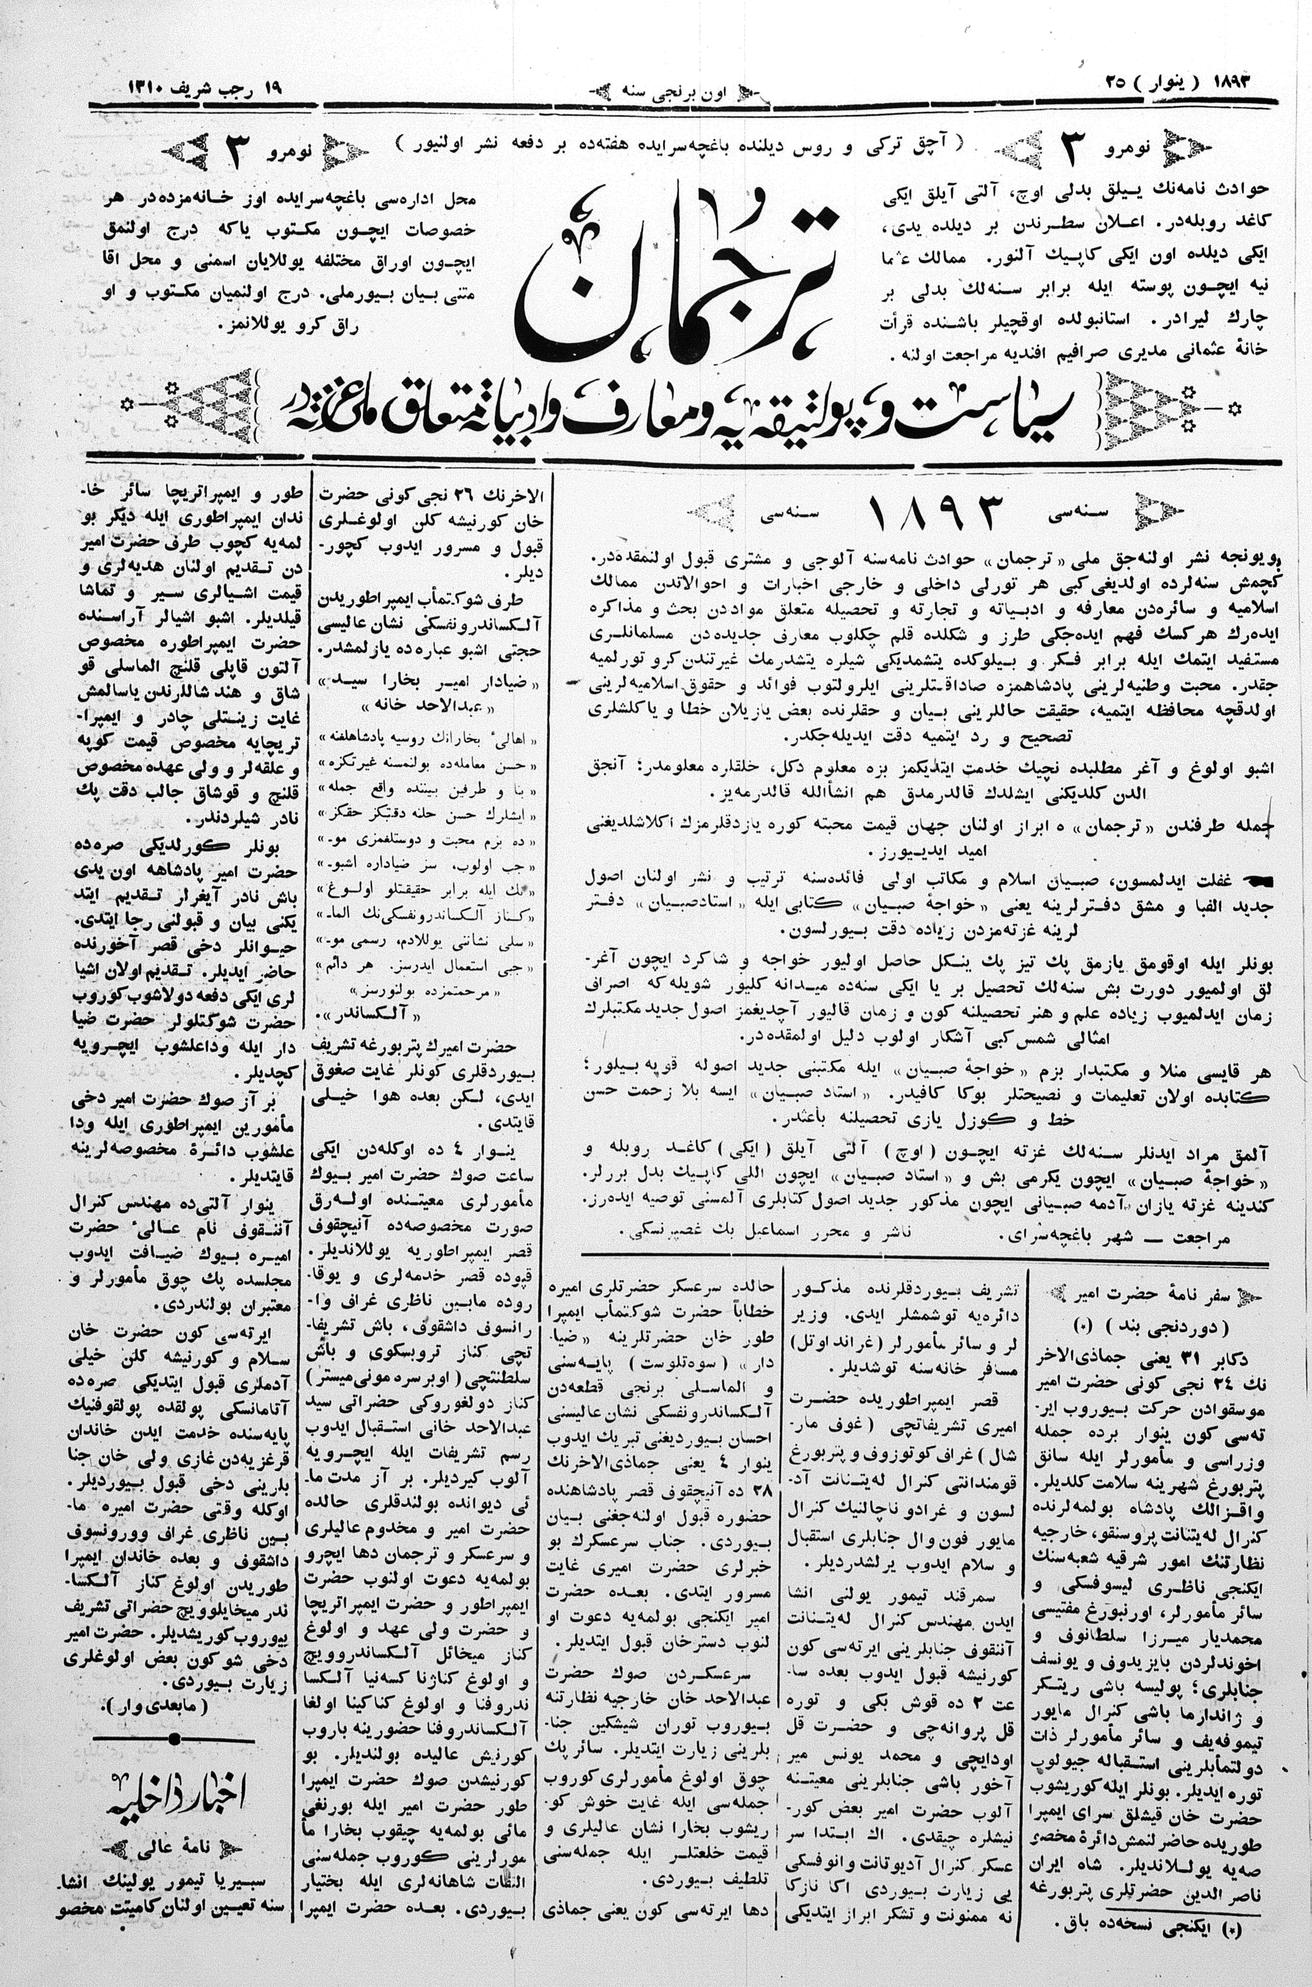 ١٨٩٣ ( ینوار ) ٢٥
اون برنجی سنه
١٩ رجب شریف ١٣١٠
نومرو ٣
( آچق ترکی و روس دیلنده باغچه‌سرایده هفته‌ده بر دفعه نشر اولنیور )
نومرو ٣
حوادث نامه‌نك ییلق بدلی اوچ، آلتی آیلق ایکی
کاغد روبله‌در. اعلان سطرندن بر دیلده یدی،
ایکی دیلده اون ایکی کاپیك آلنور. ممالك عثما
نیه ایچون پوسته ایله برابر سنه‌لك بدلی بر
چارك لیرادر. استانبولده اوقچیلر باشنده قرأت
خانهٔ عثمانی مدیری صرافیم افندیه مراجعت اولنه.
ترجمان
محل اداره‌سی باغچه‌سرایده اوز خانه‌مزده‌در هر
خصوصات ایچون مکتوب یاکه درج اولنمق
ایچون اوراق مختلفه یوللایان اسمنی و محل اقا
متنی بیان بیورملی. درج اولنمیان مکتوب و او
راق کرو یوللانمز.
سیاست و پولتیقه‌یه و معارف و ادبیاته متعلق ملی غزته‌در
سنه‌سی ١٨٩٣ سنه‌سی
ویونجه نشر اولنه‌جق ملی «ترجمان» حوادث نامه‌سنه آلوجی و مشتری قبول اولنمقده‌در.
کچمش سنه‌لرده اولدیغی کبی هر تورلی داخلی و خارجی اخبارات و احوالاتدن ممالك
اسلامیه و سائره‌دن معارفه و ادبیاته و تجارته و تحصیله متعلق مواددن بحث و مذاکره
ایده‌رك هر کسك فهم ایده‌جکی طرز و شکلده قلم چکلوب معارف جدیده‌دن مسلمانلری
مستفید ایتمك ایله برابر فکر و بیلوکده یتشمدیکی شیلره یتشدرمك غیرتندن کرو تورلمیه
جقدر. محبت وطنیه‌لرینی پادشاهمزه صداقتلرینی ایلرولتوب فوائد و حقوق اسلامیه‌لرینی
اولدقچه محافظه ایتمیه، حقیقت حاللرینی بیان و حقلرنده بعض یازیلان خطا و یاکلشلری
تصحیح و رد ایتمیه دقت ایدیله‌جکدر.
اشبو اولوغ و آغر مطلبده نچیك خدمت ایتدیکمز بزه معلوم دکل، خلقلره معلومدر؛ آنجق
الدن کلدیکنی ایشلدك قالدرمدق هم انشأالله قالدرمه‌یز.
جمله طرفندن «ترجمان» ه ابراز اولنان جهان قیمت محبته کوره یازدقلرمزك اکلاشلدیغنی
امید ایدییورز.
غفلت ایدلمسون، صبیان اسلام و مکاتب اولی فائده‌سنه ترتیب و نشر اولنان اصول
جدید الفبا و مشق دفترلرینه یعنی «خواجهٔ صبیان» کتابی ایله «استاد صبیان» دفتر
لرینه غزته‌مزدن زیاده دقت بیورلسون.
بونلر ایله اوقومق یازمق پك تیز پك ینکل حاصل اولیور خواجه و شاکرد ایچون آغر-
لق اولمیور دورت بش سنه‌لك تحصیل بر یا ایکی سنه‌ده میدانه کلیور شویله‌که اصراف
زمان ایدلمیوب زیاده علم و هنر تحصیلنه کون و زمان قالیور آچدیغمز اصول جدید مکتبلرك
امثالی شمس کبی آشکار اولوب دلیل اولمقده‌در.
هر قایسی منلا و مکتبدار بزم «خواجهٔ صبیان» ایله مکتبنی جدید اصوله قویه بیلور؛
کتابده اولان تعلیمات و نصیحتلر بوکا کافیدر. «استاد صبیان» ایسه بلا زحمت حسن
خط و کوزل یازی تحصیلنه باعثدر.
آلمق مراد ایدنلر سنه‌لك غزته ایچون (اوچ) آلتی آیلق (ایکی) کاغد روبله و
«خواجهٔ صبیان» ایچون یکرمی بش و «استاد صبیان» ایچون اللی کاپیك بدل بررلر.
کندینه غزته یازان آدمه صبیانی ایچون مذکور جدید اصول کتابلری آلمسنی توصیه ایده‌رز.
مراجعت — شهر باغچه‌سرای. ناشر و محرر اسماعیل بك غصپرنسکی.
سفر نامهٔ حضرت امیر
(دوردنجی بند) (*)
دکابر ٣١ یعنی جماذی‌الاخر
نك ٢٤ نجی کونی حضرت امیر
موسقوادن حرکت بیوروب ایر-
ته‌سی کون ینوار برده جمله
وزراسی و مأمورلر ایله سانق
پتربورغ شهرینه سلامت کلدیلر.
واقزالك پادشاه بولمه‌لرنده
کنرال له‌یتنانت پروسنقو، خارجیه
نظارتنك امور شرقیه شعبه‌سنك
ایکنجی ناظری لیسوفسکی و
سائر مأمورلر، اورنبورغ مفتیسی
محمدیار میرزا سلطانوف و
اخوندلردن بایزیدوف و یوسف
جنابلری؛ پولیسه باشی ریتنکر
و ژاندارما باشی کنرال مایور
تیموفه‌یف و سائر مأمورلر ذات
دولتمأبلرینی استقباله جیولوب
توره ایدیلر. بونلر ایله کوریشوب
حضرت خان قیشلق سرای ایمپرا
طوریده حاضرلنمش دائرهٔ مخصو
صه‌یه یوللاندیلر. شاه ایران
ناصر الدین حضرتلری پتربورغه
(*) ایکنجی نسخه‌ده باق.
تشریف بیوردقلرنده مذکور
دائره‌یه توشمشلر ایدی. وزیر
لر و سائر مأمورلر (غراند اوتل)
مسافر خانه‌سنه توشدیلر.
قصر ایمپراطوریده حضرت
امیری تشریفاتچی (غوف مار-
شال) غراف کوتوزوف و پتربورغ
قومندانتی کنرال له‌یتنانت آد-
لسون و غرادو ناچالنیك کنرال
مایور فون وال جنابلری استقبال
و سلام ایدوب یرلشدردیلر.
سمرقند تیمور یولنی انشا
ایدن مهندس کنرال له‌یتنانت
آننقوف جنابلرینی ایرته‌سی کون
کورنیشه قبول ایدوب بعده سا-
عت ٢ ده قوش بکی و توره
قل پروانه‌چی و حضرت قل
اودایچی و محمد یونس میر
آخور باشی جنابلرینی معیتنه
آلوب حضرت امیر بعض کور-
نیشلره چیقدی. اك ابتدا سر
عسکر کنرال آدیوتانت وانوفسکی
یی زیارت بیوردی اکا نازکا
نه ممنونت و تشکر ابراز ایتدیکی
حالده سرعسکر حضرتلری امیره
خطاباً حضرت شوکتمأب ایمپرا
طور خان حضرتلرینه «ضیا-
دار» (سوه‌تلوست) پایه‌سنی
و الماسلی برنجی قطعه‌دن
آلکساندرونفسکی نشان عالیسنی
احسان بیوردیغنی تبریك ایدوب
ینوار ٤ یعنی جماذی‌الاخرنك
٢٨ ده آنیچقوف قصر پادشاهنده
حضوره قبول اولنه‌جغنی بیان
بیوردی. جناب سرعسکرك بو
خبرلری حضرت امیری غایت
مسرور ایتدی. بعده حضرت
امیر ایکنجی بولمه‌یه دعوت او
لنوب دسترخان قبول ایتدیلر.
سرعسکردن صوك حضرت
عبدالاحد خان خارجیه نظارتنه
بیوروب توران شیشکین جنا-
بلرینی زیارت ایتدیلر. سائر پك
چوق اولوغ مأمورلری کوروب
جمله‌سی ایله غایت خوش کو-
ریشوب بخارا نشان عالیلری و
قیمت خلعتلر ایله جمله‌سنی
تلطیف بیوردی.
دها ایرته‌سی کون یعنی جماذی
الاخرنك ٢٦ نجی کونی حضرت
خان کورنیشه کلن اولوغلری
قبول و مسرور ایدوب کچور-
دیلر.
طرف شوکتمأب ایمپراطوریدن
آلکساندرونفسکی نشان عالیسی
حجتی اشبو عباره‌ده یازلمشدر.
«ضیادار امیر بخارا سید»
«عبدالاحد خانه»
«اهالیٔ بخارانك روسیه پادشاهلغنه»
«حسن معامله‌ده بولنمسنه غیرتکزه»
«بنا و طرفین بیننده واقع جمله»
«ایشلرك حسن حلنه دقتکز حقکز»
«ده بزم محبت و دوستلغمزی مو-»
«جب اولوب، سز ضیاداره اشبو-»
«نك ایله برابر حقیقتلو اولوغ»
«کناز آلکساندرونفسکی‌نك الما-»
«سلی نشانتی یوللادم، رسمی مو-»
«جبی استعمال ایدرسز. هر دائم»
«مرحمتمزده بولنورسز»
«آلکساندر».
حضرت امیرك پتربورغه تشریف
بیوردقلری کونلر غایت صغوق
ایدی، لکن بعده هوا خیلی
قایتدی.
ینوار ٤ ده اوکله‌دن ایکی
ساعت صوك حضرت امیر بیوك
مأمورلری معیتنده اوله‌رق
صورت مخصوصه‌ده آنیچقوف
قصر ایمپراطوریه یوللاندیلر.
قپوده قصر خدمه‌لری و یوقا-
روده مابین ناظری غراف وا-
رانسوف داشقوف، باش تشریفا-
تچی کناز تروبسکوی و باش
سلطنتچی (اوبرسره مونی میستر)
کناز دولغوروکی حضراتی سید
عبدالاحد خانی استقبال ایدوب
رسم تشریفات ایله ایچرویه
آلوب کیردیلر. بر آز مدت ما-
ئی دیوانده بولندقلری حالده
حضرت امیر و مخدوم عالیلری
و سرعسکر و ترجمان دها ایچرو
بولمه‌یه دعوت اولنوب حضرت
ایمپراطور و حضرت ایمپراتریچا
و حضرت ولی عهد و اولوغ
کناز میخائل آلکساندروویچ
و اولوغ کناژنا کسه‌نیا آلکسا
ندروفنا و اولوغ کناکینا اولغا
آلکساندروفنا حضورینه باروب
کورنیش عالیده بولندیلر. بو
کورنیشدن صوك حضرت ایمپرا
طور حضرت امیر ایله بورنغی
مائی بولمه‌یه چیقوب بخارا مأ
مورلرینی کوروب جمله‌سنی
التفات شاهانه‌لری ایله بختیار
بیوردی. بعده حضرت ایمپرا
طور و ایمپراتریچا سائر خا-
ندان ایمپراطوری ایله دیکر بو
لمه‌یه کچوب طرف حضرت امیر
دن تقدیم اولنان هدیه‌لری و
قیمت اشیالری سیر و تماشا
قیلدیلر. اشبو اشیالر آراسنده
حضرت ایمپراطوره مخصوص
آلتون قاپلی قلنچ الماسلی قو
شاق و هند شاللرندن یاسالمش
غایت زینتلی چادر و ایمپرا-
تریچایه مخصوص قیمت کوپه
و علقه‌لر و ولی عهده مخصوص
قلنچ و قوشاق جالب دقت پك
نادر شیلردندر.
بونلر کورلدیکی صره‌ده
حضرت امیر پادشاهه اون یدی
باش نادر آیغرلر تقدیم ایتد
یکنی بیان و قبولنی رجا ایتدی.
حیوانلر دخی قصر آخورنده
حاضر ایدیلر. تقدیم اولان اشیا
لری ایکی دفعه دولاشوب کوروب
حضرت شوکتلولر حضرت ضیا
دار ایله وداعلشوب ایچرویه
کچدیلر.
بر آز صوك حضرت امیر دخی
مأمورین ایمپراطوری ایله ودا
علشوب دائرهٔ مخصوصه‌لرینه
قایتدیلر.
ینوار آلتی‌ده مهندس کنرال
آننقوف نام عالیٔ حضرت
امیره بیوك ضیافت ایدوب
مجلسده پك چوق مأمورلر و
معتبران بولندردی.
ایرته‌سی کون حضرت خان
سلام و کورنیشه کلن خیلی
آدملری قبول ایتدیکی صره‌ده
آتامانسکی پولقده پولقوفنیك
پایه‌سنده خدمت ایدن خاندان
قرغزیه‌دن غازی ولی خان جنا
بلرینی دخی قبول بیوردیلر.
اوکله وقتی حضرت امیره ما-
بین ناظری غراف وورونسوف
داشقوف و بعده خاندان ایمپرا
طوریدن اولوغ کناز آلکسا-
ندر میخایلوویچ حضراتی تشریف
بیوروب کوریشدیلر. حضرت امیر
دخی شو کون بعض اولوغلری
زیارت بیوردی.
(مابعدی وار).
اخبار داخلیه
نامهٔ عالی
سیبریا تیمور یولینك انشا-
سنه تعیین اولنان کامیتت مخصو